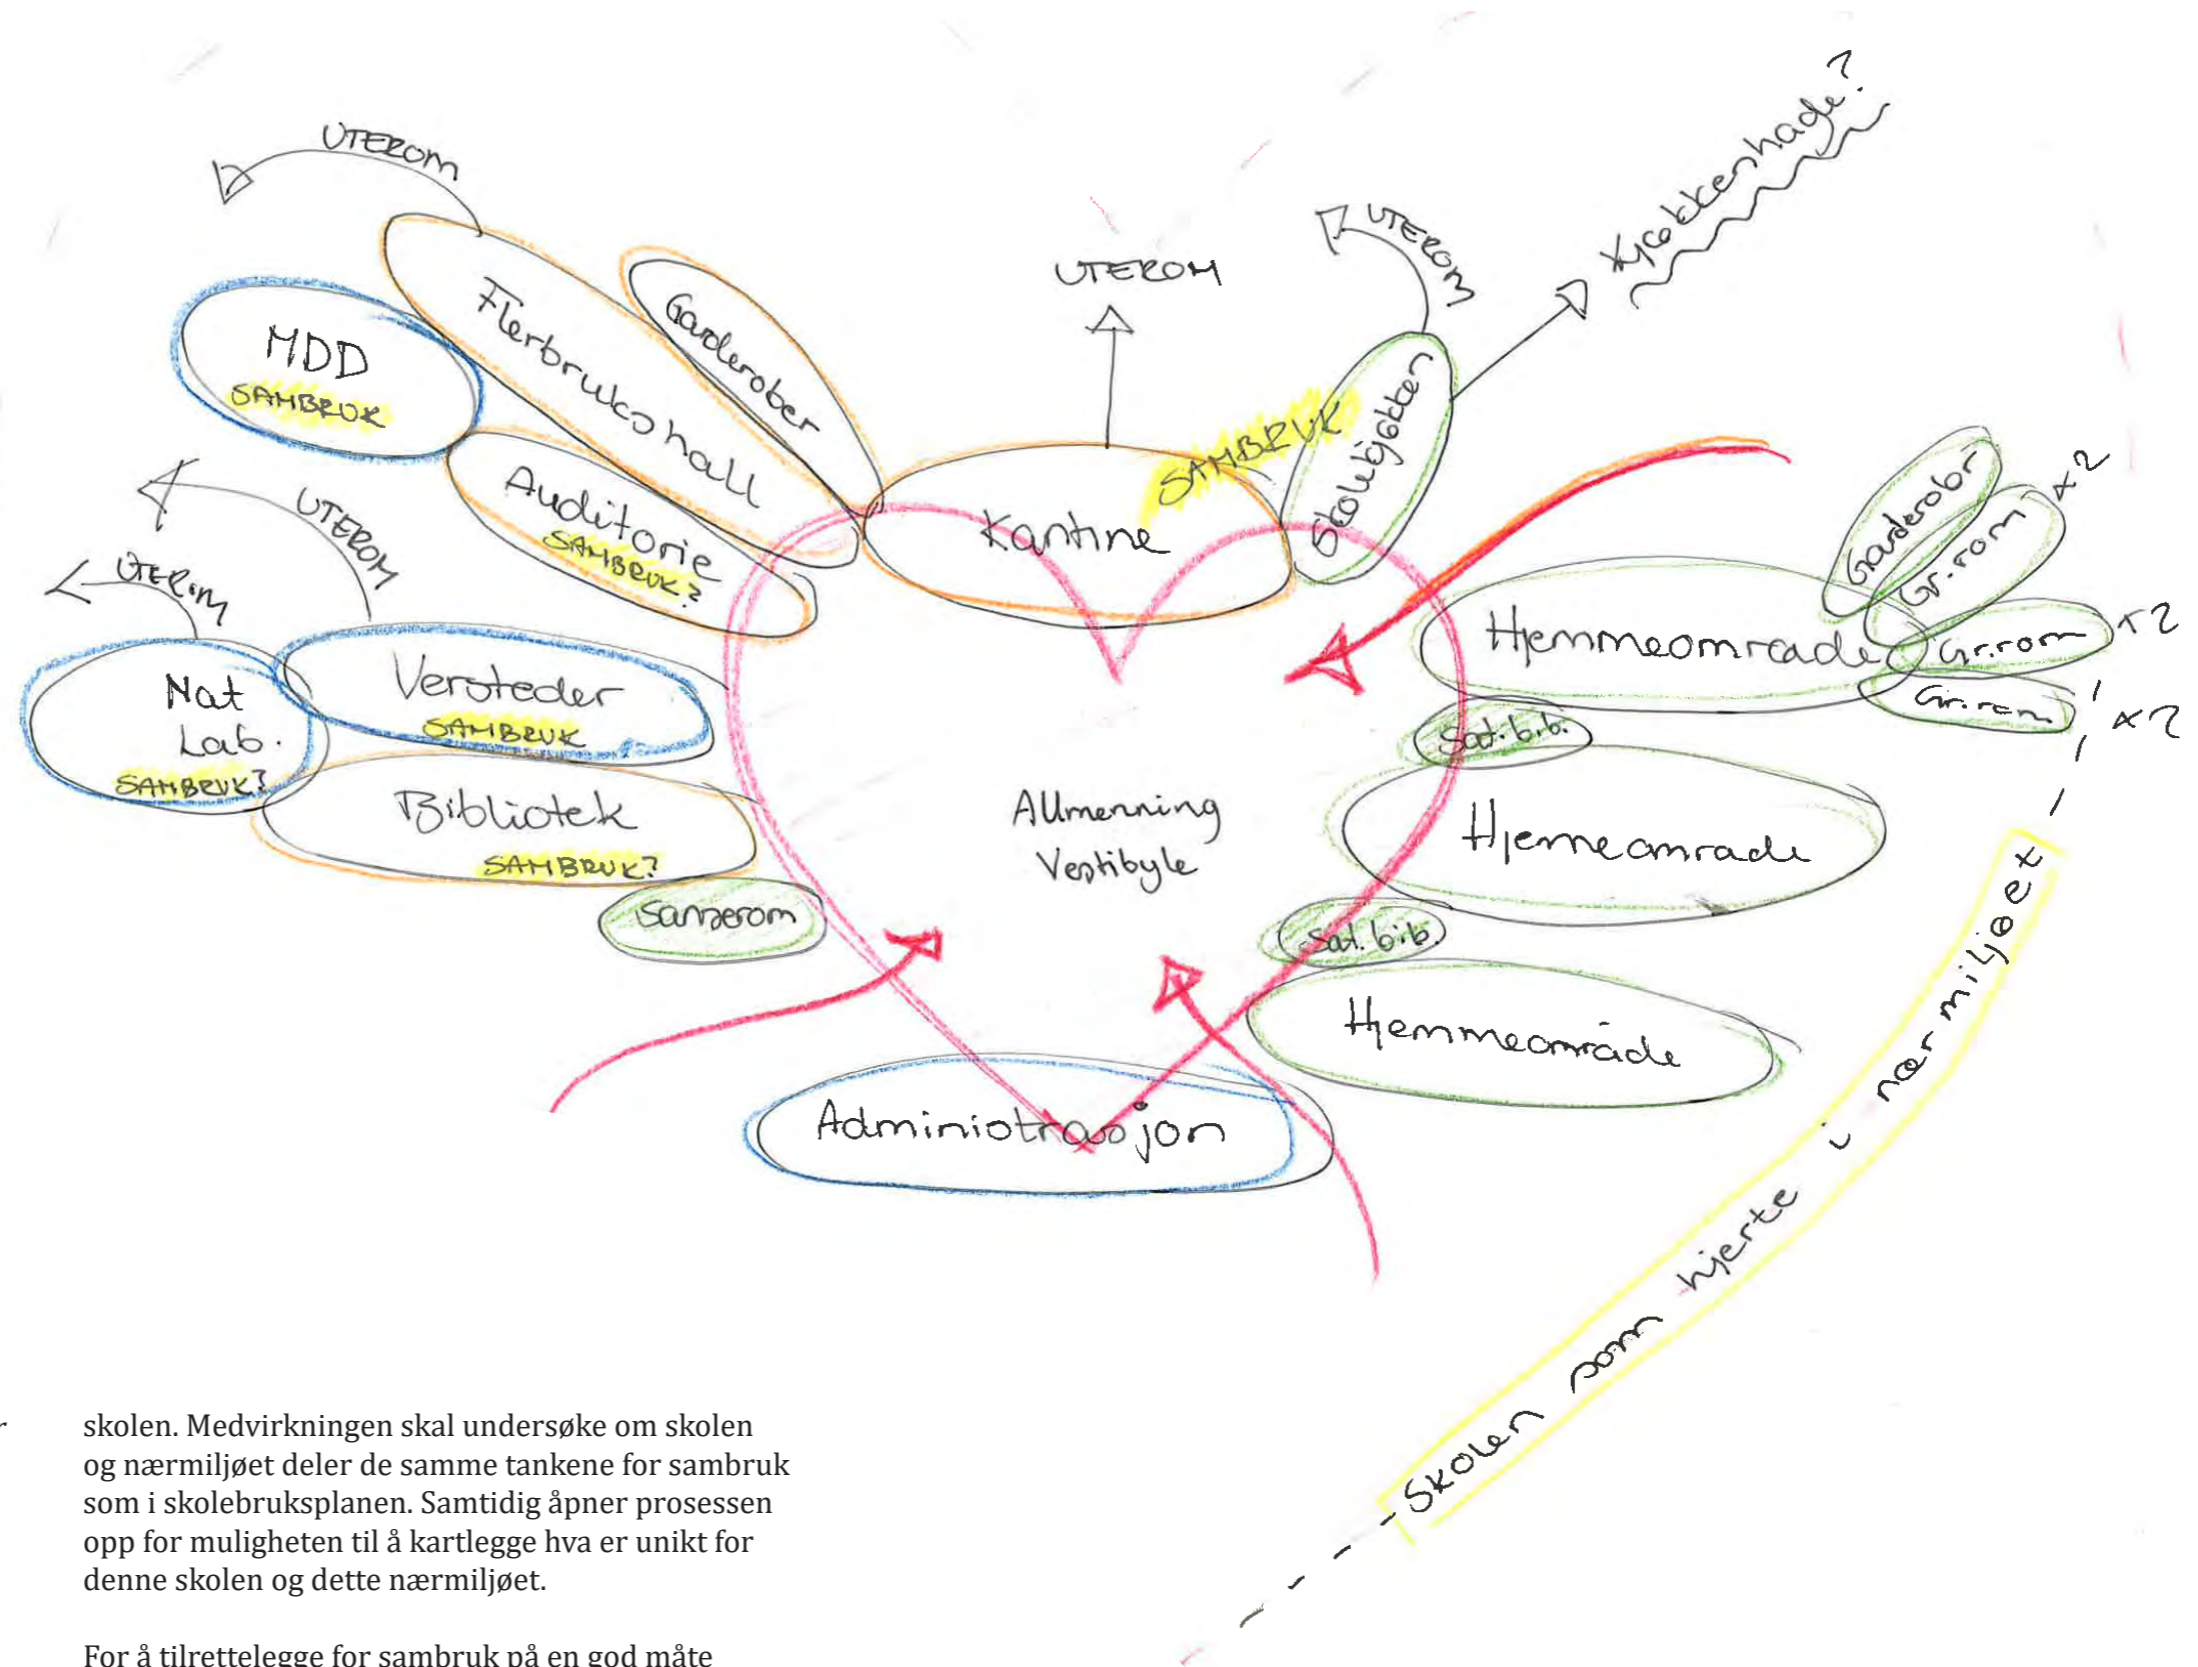 UTEROM
MDD
SAMBRUK
Flerbrukshall
Garderober
Auditorie
SAMBRUK?
UTEROM
UTEROM
Nat
Lab.
SAMBRUK?
Versteder
SAMBRUK
Bibliotek
SAMBRUK?
Sanserom
UTEROM
Kantine
SAMBRUK
Skolekjøkken
UTEROM
Kjøkkenhage?
Allmenning
Vestibyle
Administrasjon
Hjemmeområde
Garderober
Gr.rom x2
Gr.rom x2
Gr.rom x2
Sat.bib.
Hjemmeområde
Sat.bib.
Hjemmeområde
Skolen som hjerte i nærmiljøet
skolen. Medvirkningen skal undersøke om skolen
og nærmiljøet deler de samme tankene for sambruk
som i skolebruksplanen. Samtidig åpner prosessen
opp for muligheten til å kartlegge hva er unikt for
denne skolen og dette nærmiljøet.
For å tilrettelegge for sambruk på en god måte